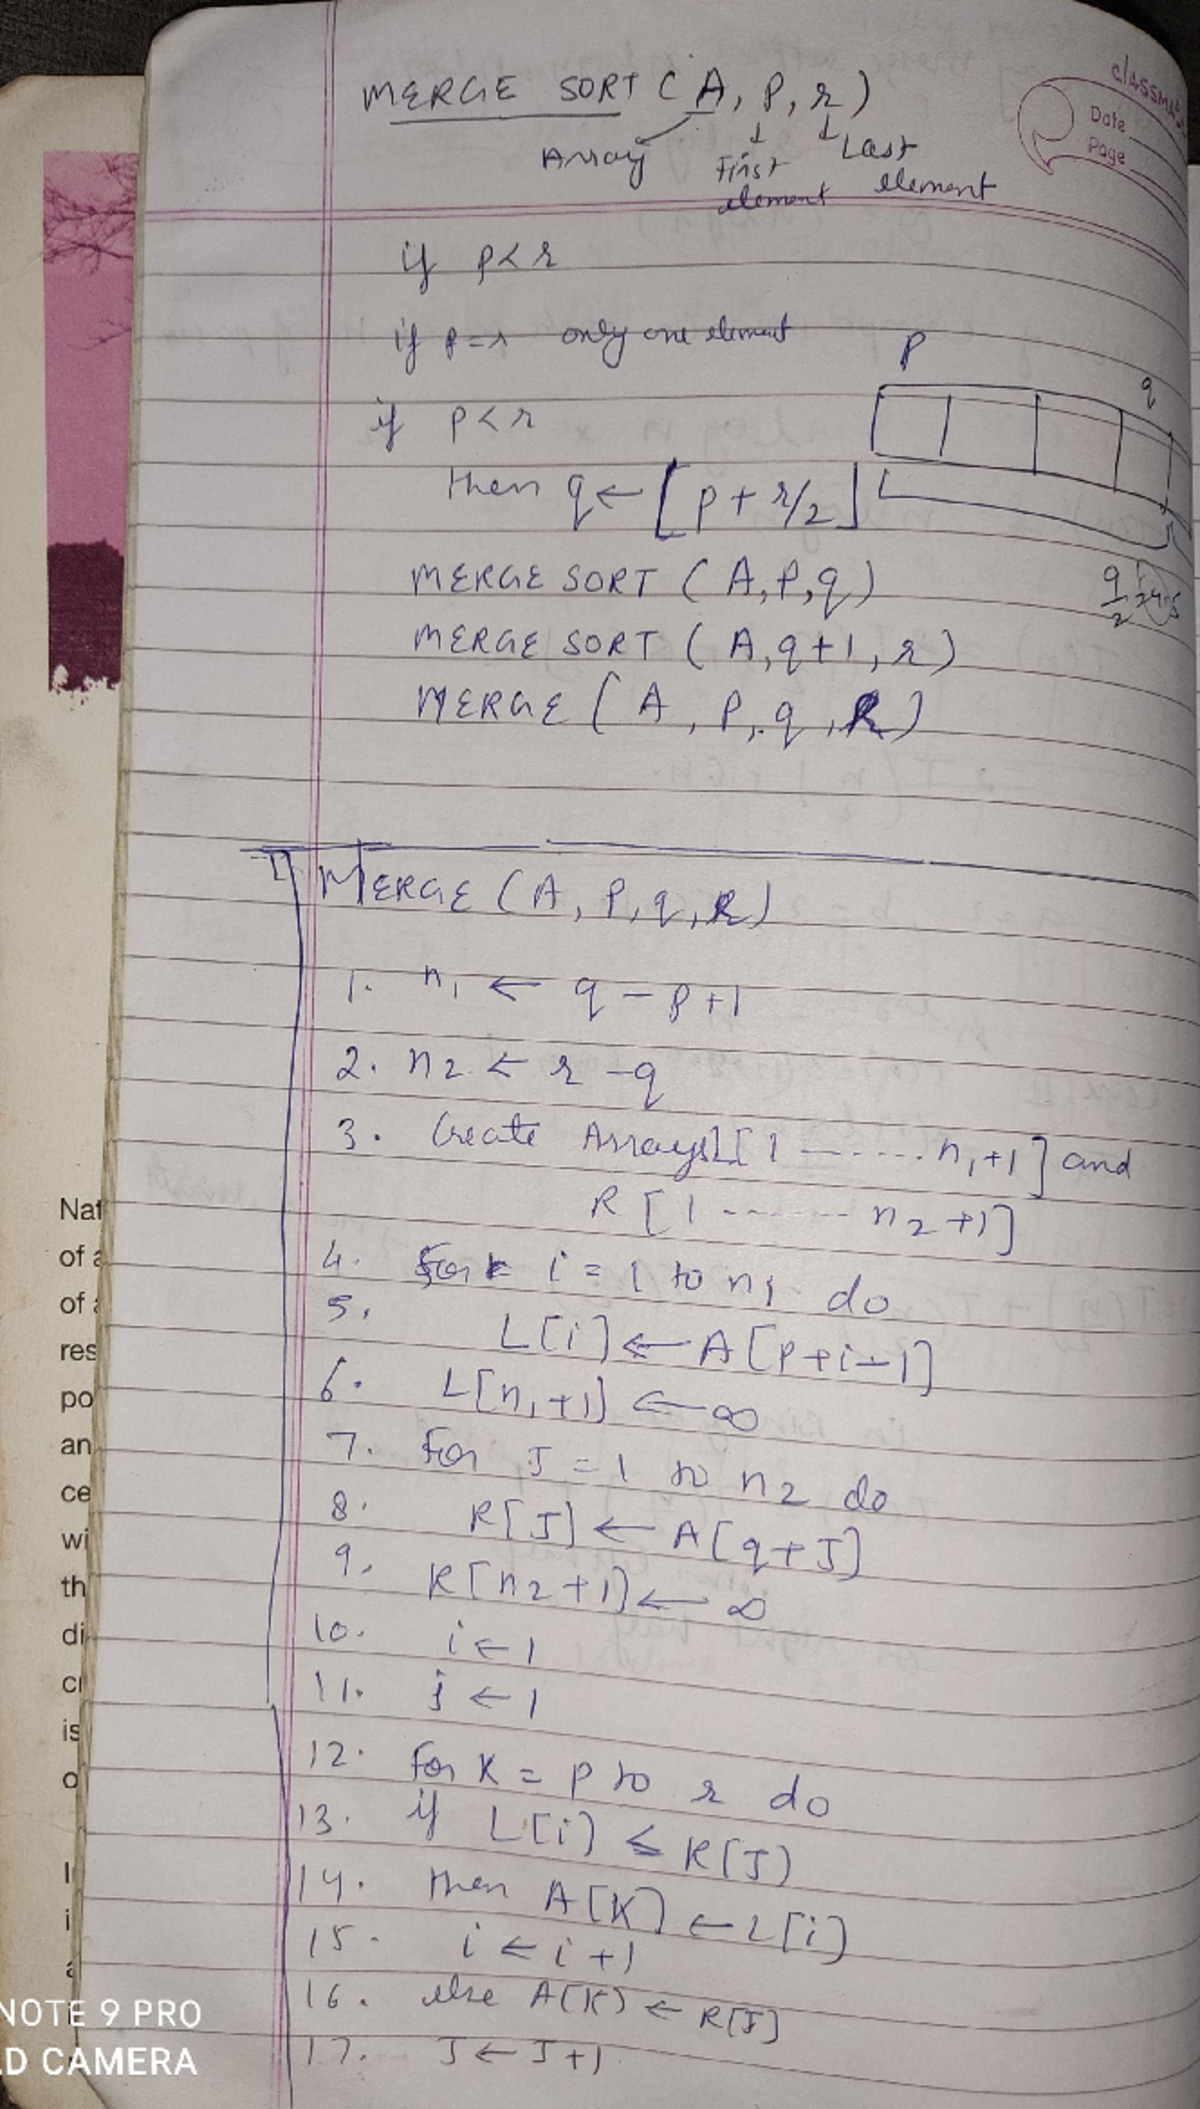 classmate
Date
Page
MERGE SORT (A, P, r)
Array First element Last element
if p<r
if p=r only one element
P
q
if p<r
then q← ⌊p+r/2⌋
MERGE SORT (A,P,q)
MERGE SORT (A,q+1,r)
MERGE (A, P,q,R)
MERGE (A, P,q,R)
1. n1 ← q-p+1
2. n2 ← r-q
3. Create Arrays L[1 ------ n1+1] and
R [1 ------ n2+1]
4. For i = 1 to n1 do
5. L[i] ← A[p+i-1]
6. L[n1+1] ← ∞
7. For J = 1 to n2 do
8. R[J] ← A[q+J]
9. R[n2+1] ← ∞
10. i ← 1
11. j ← 1
12. For K = p to r do
13. if L[i] ≤ R[J]
14. then A[K] ← L[i]
15. i ← i+1
16. else A[K] ← R[J]
17. J ← J+1
Nat
of a
of a
res
po
an
ce
wi
th
di
cr
is
o
NOTE 9 PRO
D CAMERA